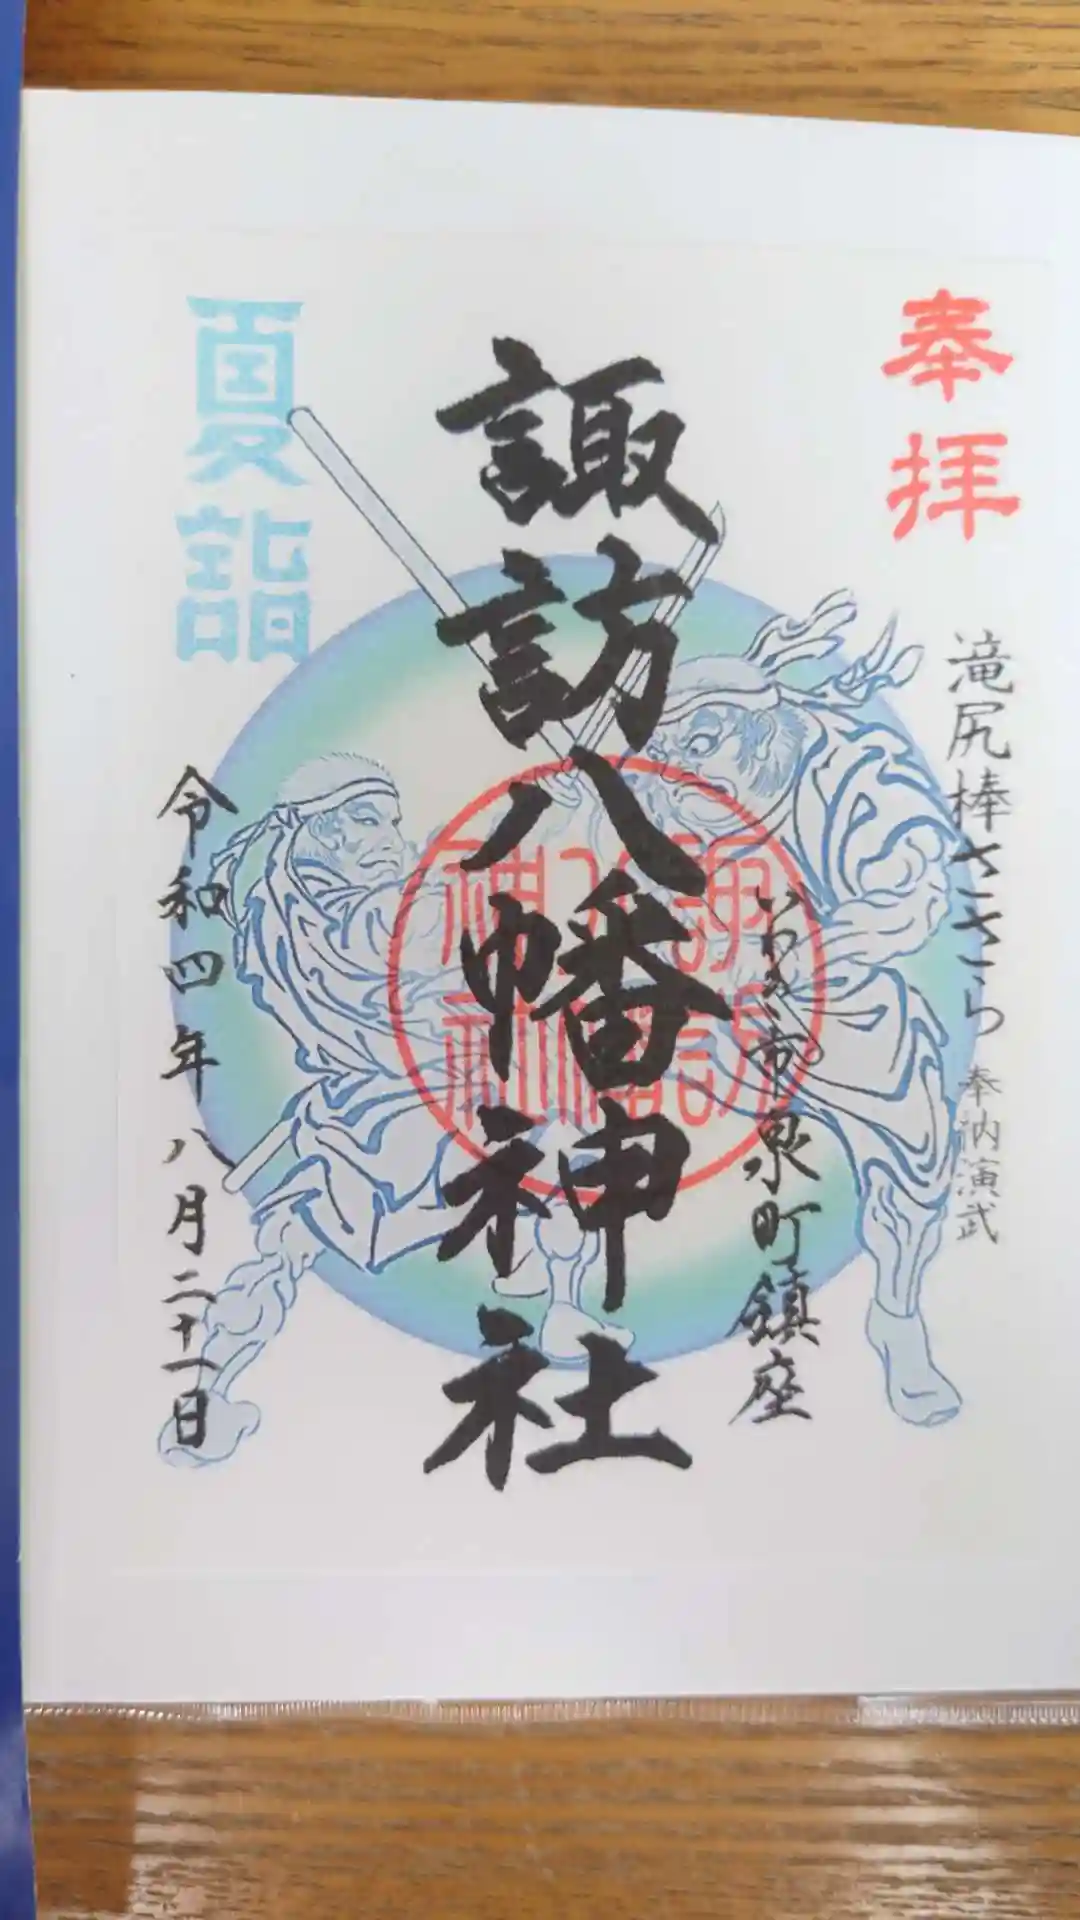 奉拝
滝尻棒ささら 奉納演武
いわき市泉町鎮座
諏訪八幡神社
諏訪
八幡
神社
夏詣
令和四年八月二十一日